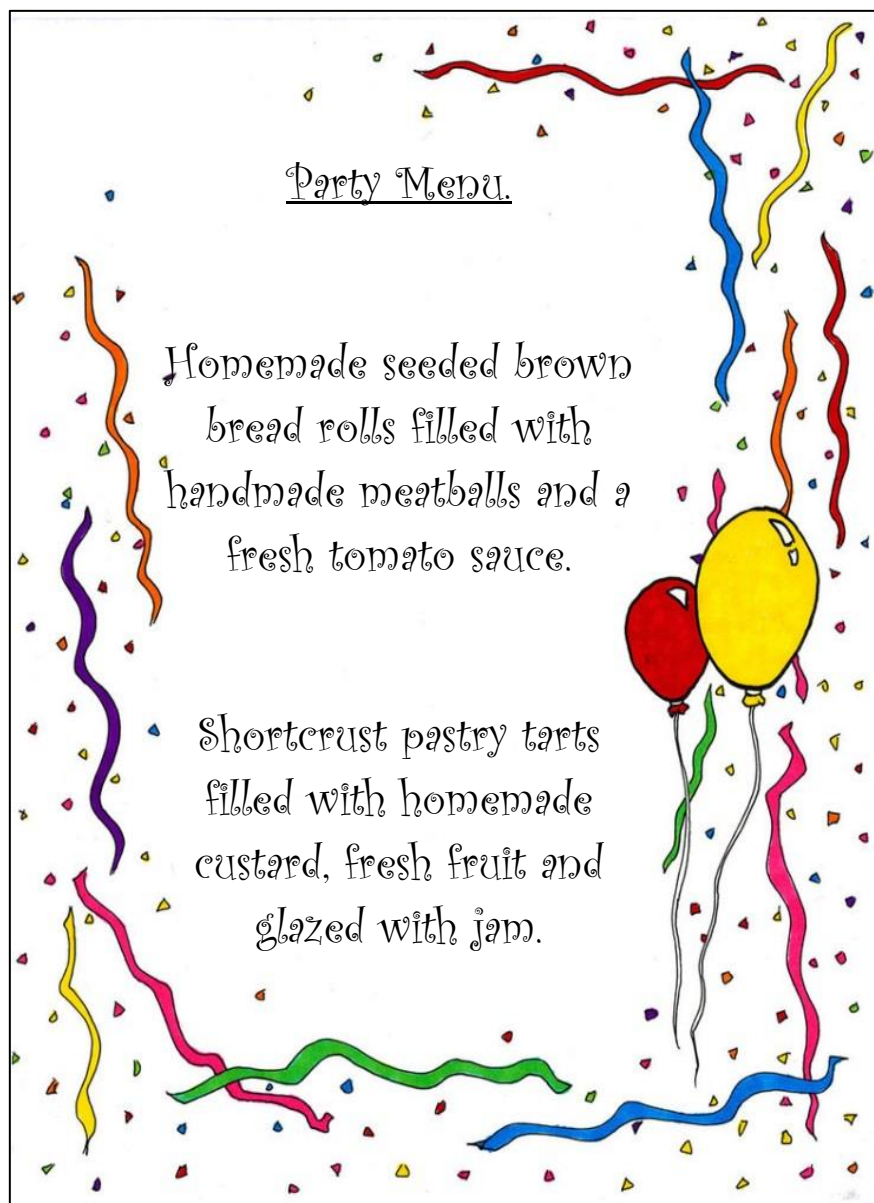 Party Menu.
Homemade seeded brown
bread rolls filled with
handmade meatballs and a
fresh tomato sauce.
Shortcrust pastry tarts
filled with homemade
custard, fresh fruit and
glazed with jam.